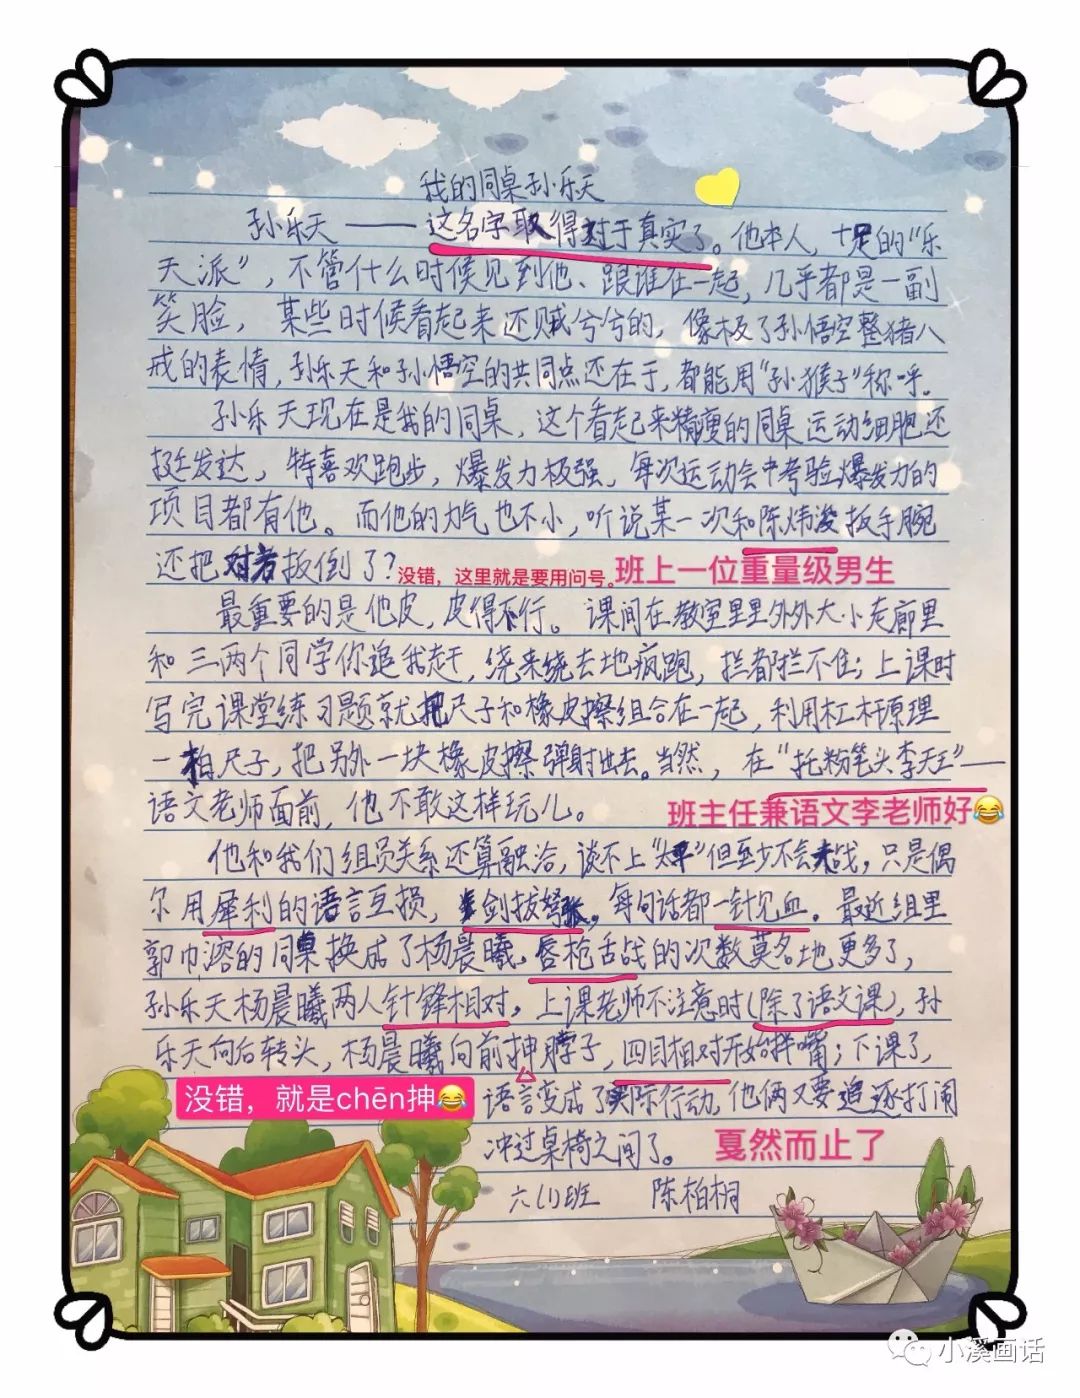 我的同桌孙乐天
孙乐天——这名字取得对于真实了。他本人，十足的“乐
天派”，不管什么时候见到他、跟谁在一起，几乎都是一副
笑脸，某些时候看起来还贼兮兮的，像极了孙悟空整猪八
戒的表情，孙乐天和孙悟空的共同点还在于，都能用“孙猴子”称呼。
孙乐天现在是我的同桌，这个看起来精瘦的同桌运动细胞还
挺发达，特喜欢跑步，爆发力极强，每次运动会中考验爆发力的
项目都有他。而他的力气也不小，听说某一次和陈炜浚扳手腕
还把对者扳倒了？没错，这里就是要用问号。班上一位重量级男生
最重要的是他皮，皮得不行。课间在教室里里外外大小走廊里
和三两个同学你追我赶，绕来绕去地疯跑，拦都拦不住；上课时
写完课堂练习题就把尺子和橡皮擦组合在一起，利用杠杆原理
一拍尺子，把另外一块橡皮擦弹射出去。当然，在“托粉笔头李天王”——
语文老师面前，他不敢这样玩儿。
班主任兼语文李老师好😂
他和我们组员关系还算融洽，谈不上“太平”但至少不会大战，只是偶
尔用犀利的语言互损，剑拔弩张，每句话都一针见血。最近组里
郭巾溶的同桌换成了杨晨曦，唇枪舌战的次数莫名地更多了，
孙乐天杨晨曦两人针锋相对，上课老师不注意时(除了语文课)，孙
乐天向后转头，杨晨曦向前抻脖子，四目相对开始拌嘴；下课了，
没错，就是chēn抻😂
语言变成了实际行动，他俩又要追逐打闹
冲过桌椅之间了。
戛然而止了
六(1)班 陈柏桐
小溪画话